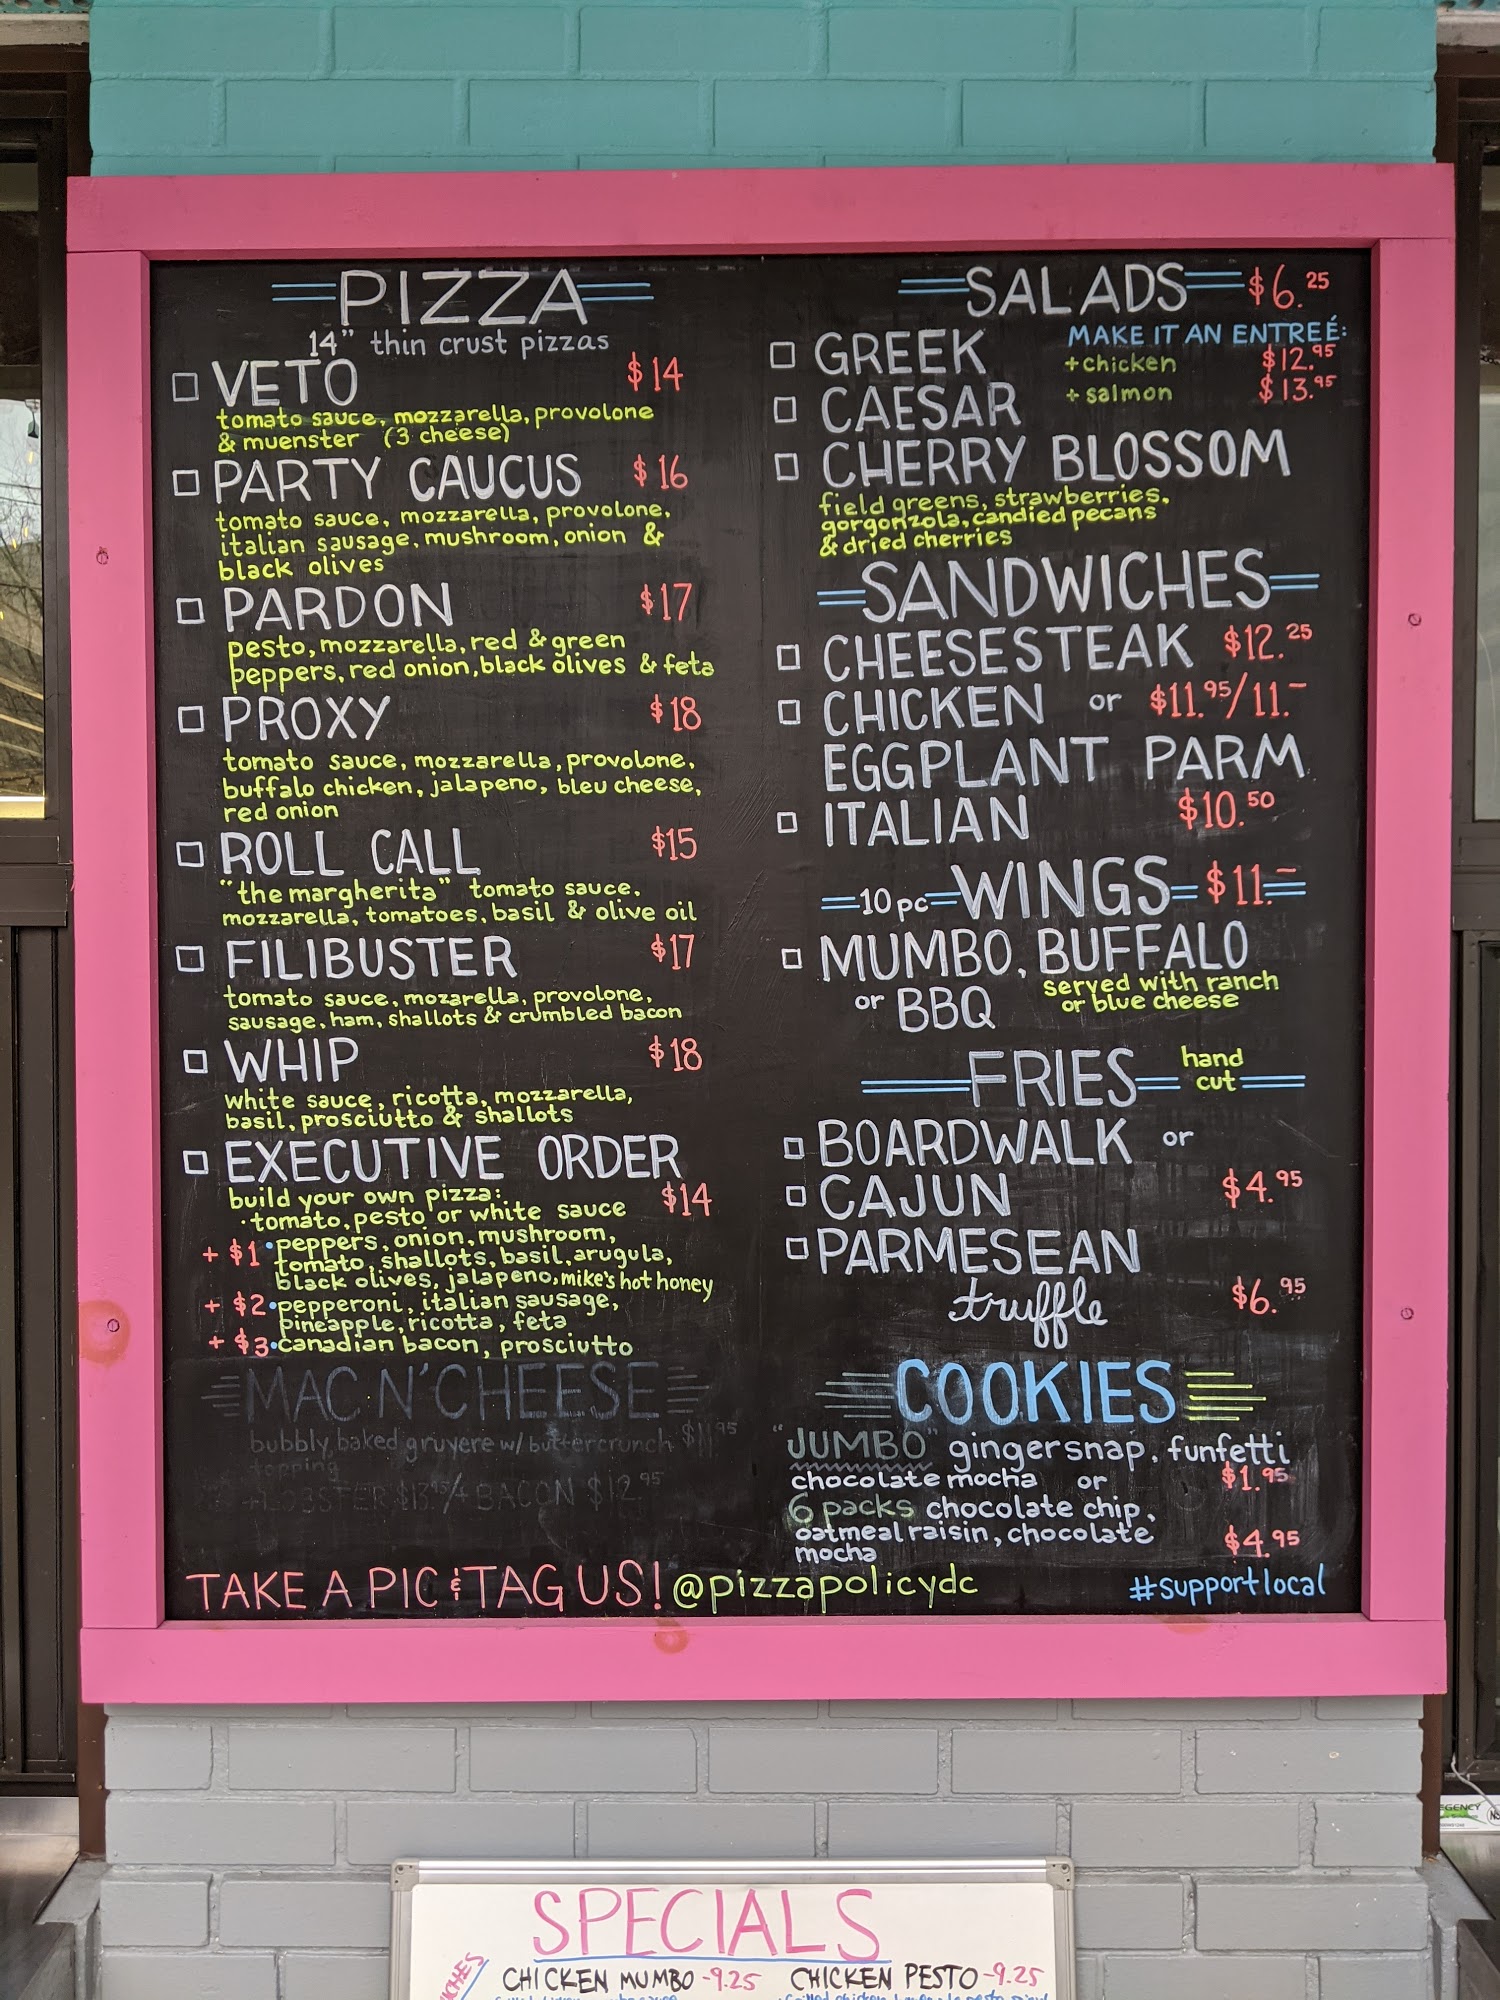 PIZZA
14" thin crust pizzas
VETO $14
tomato sauce, mozzarella, provolone
& muenster (3 cheese)
PARTY CAUCUS $16
tomato sauce, mozzarella, provolone,
italian sausage, mushroom, onion &
black olives
PARDON $17
pesto, mozzarella, red & green
peppers, red onion, black olives & feta
PROXY $18
tomato sauce, mozzarella, provolone,
buffalo chicken, jalapeno, bleu cheese,
red onion
ROLL CALL $15
"the margherita" tomato sauce,
mozzarella, tomatoes, basil & olive oil
FILIBUSTER $17
tomato sauce, mozarella, provolone,
sausage, ham, shallots & crumbled bacon
WHIP $18
white sauce, ricotta, mozzarella,
basil, prosciutto & shallots
EXECUTIVE ORDER
build your own pizza: $14
·tomato, pesto or white sauce
+ $1 •peppers, onion, mushroom,
tomato, shallots, basil, arugula,
black olives, jalapeno, mike's hot honey
+ $2 •pepperoni, italian sausage,
pineapple, ricotta, feta
+ $3 •canadian bacon, prosciutto
MAC N' CHEESE
bubbly baked gruyere w/ buttercrunch $11.95
topping
+LOBSTER $13.95/+ BACON $12.95
SALADS $6.25
MAKE IT AN ENTREÉ:
GREEK +chicken $12.95
CAESAR + salmon $13.95
CHERRY BLOSSOM
field greens, strawberries,
gorgonzola, candied pecans
& dried cherries
SANDWICHES
CHEESESTEAK $12.25
CHICKEN or $11.95/11.–
EGGPLANT PARM
ITALIAN $10.50
10 pc WINGS $11.–
MUMBO, BUFFALO
or BBQ served with ranch
or blue cheese
FRIES hand
cut
BOARDWALK or
CAJUN $4.95
PARMESEAN
truffle $6.95
COOKIES
"JUMBO" gingersnap, funfetti
chocolate mocha or $1.95
6 packs chocolate chip,
oatmeal raisin, chocolate $4.95
mocha
TAKE A PIC & TAG US! @pizzapolicydc #supportlocal
SPECIALS
CHICKEN MUMBO -9.25 CHICKEN PESTO -9.25